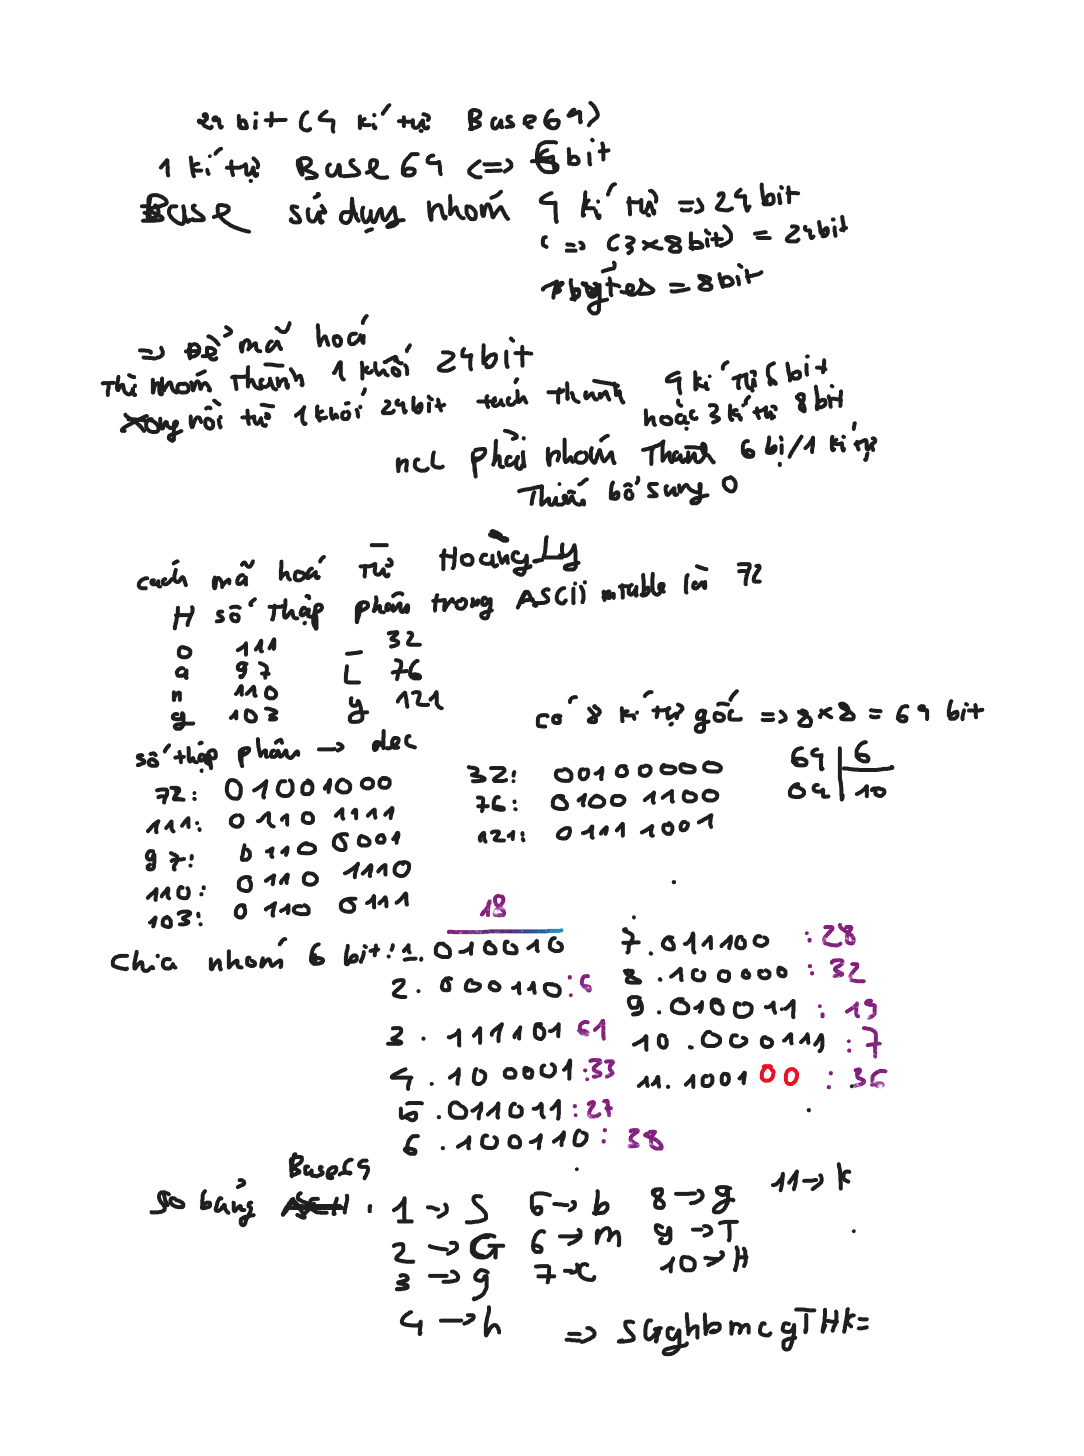 24 bit (4 kí tự Base64)
1 kí tự Base 64 <=> 6 bit
Base sử dụng nhóm 4 kí tự => 24 bit
( => (3 x 8 bit) = 24 bit
1 bytes = 8 bit
=> Để mã hoá
Thì nhóm thành 1 khối 24 bit
Xong rồi từ 1 khối 24bit tách thành 4 kí tự 6 bit
hoặc 3 kí tự 8 bit
ncl phải nhóm thành 6 bị/1 kí tự
Thiếu bổ sung 0
cách mã hoá từ Hoang Ly
H số thập phân trong ASCII table là 72
o 111 _ 32
a 97 L 76
n 110 y 121
g 103
có 8 kí tự gốc => 8x8 = 64 bit
số thập phân -> dec
64 | 6
04 | 10
72: 01001000 32: 00100000
111: 0110 1111 76: 0100 1100
97: 0110 0001 121: 0111 1001
110: 0110 1110
103: 0110 0111
18
Chia nhóm 6 bit: 1. 010010 7. 011100 : 28
2. 000110 : 6 8. 100000 : 32
3. 111101 61 9. 010011 : 19
4. 10 0001 : 33 10. 000111 : 7
5. 011011 : 27 11. 1001 00 : 36
6. 100110 : 38
Base64
So bảng ASCII : 1 -> S 5 -> b 8 -> g 11 -> k
2 -> G 6 -> m 9 -> T
3 -> 9 7 -> c 10 -> H
4 -> h => SG9hbmcgTHk=